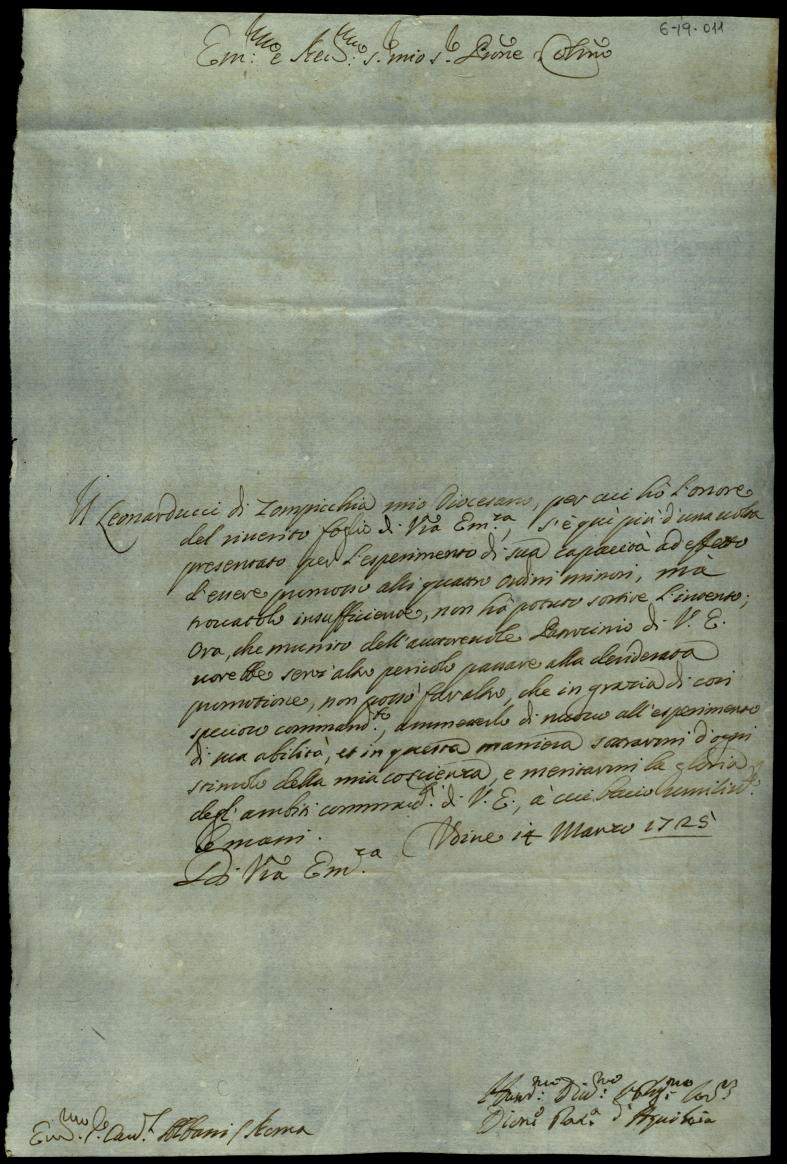 6-19-011
Em:mo e Reu:mo S.r mio S.r P.rone Col.mo
Il Leonarducci di Zompicchia mio Diocesano, per cui hò l'onore
del riverito foglio di V.ra Em.za, s'è quì più d'una volta
presentato per l'esperimento di sua capacità ad effetto
d'essere promosso alli quattro Ordini minori, mà
trovatolo insufficiente, non hà potuto sortire l'intento;
Ora, che munito dell'autorevole Patrocinio di V. E.
vorebbe senz'altro pericolo passare alla desiderata
promotione, non posso far altro, che in grazia di così
specioso command.to, ammeterlo di nuovo all'esperimento
di sua abilità, et in questa maniera sottrarmi d'ogni
stimolo della mia coscienza, e meritarmi la gloria
degl'ambiti command.ti di V. E., à cui bacio humilm.te
le mani.
Di V.ra Em.za Udine 14 Marzo 1725
Em:mo S.r Card.l Albani / Roma
Dion.o Pat.a d'Aquileia